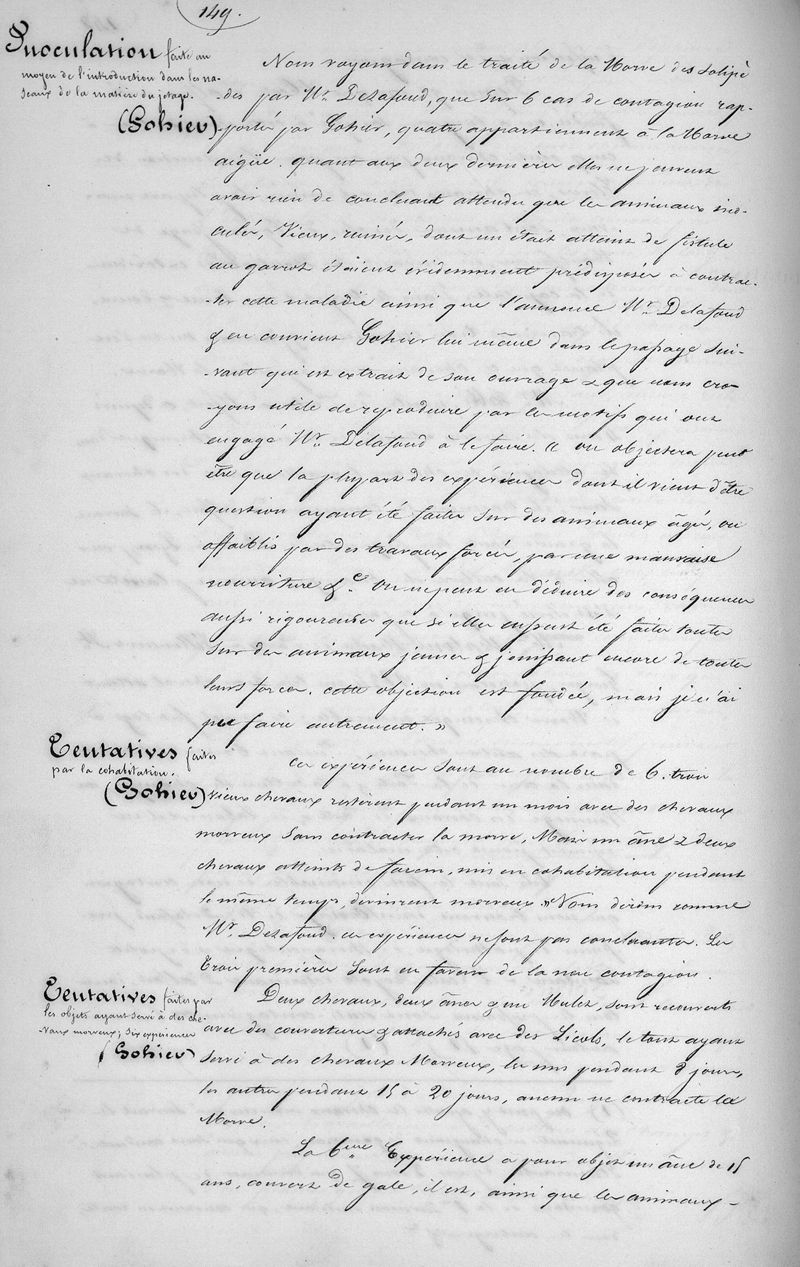 149.
Inoculation faite au
moyen de l'introduction dans les na-
seaux de la matière du jetage.
(Gohier)
Nous voyons dans le traité de la Morve des solipè
des par Mr. Delafond, que sur 6 cas de contagion rap-
portés par Gohier, quatre appartiennent à la Morve
aigüe. quant aux deux dernières elles ne peuvent
avoir rien de concluant attendu que les animaux ino-
culés, Vieux, ruinés, dont un était atteint de fistule
au garrot étaient évidemment prédisposés à contrac-
ter cette maladie ainsi que l'annonce Mr. Delafond
& en convient Gohier lui même dans le passage sui-
vant qui est extrait de son ouvrage & que nous cro-
yons utile de reproduire par les motifs qui ont
engagé Mr. Delafond à le faire. « on objectera peut
être que la plupart des expériences dont il vient d'être
question ayant été faites sur des animaux âgés, ou
affaiblis par des travaux forcés, par une mauvaise
nourriture &c. On ne peut en déduire des conséquences
aussi rigoureuses que si elles eussent été faites toutes
sur des animaux jeunes & jouissant encore de toutes
leurs forces. cette objection est fondée, mais je n'ai
pu faire autrement. »
Tentatives faites
par la cohabitation.
(Gohier)
Ces expériences sont au nombre de 6. trois
vieux chevaux restèrent pendant un mois avec des chevaux
morveux sans contracter la morve, Mais un âne & deux
chevaux atteints de farcin, mis en cohabitation pendant
le même temps, devinrent morveux » Nous dirons comme
Mr. Delafond. ces expériences ne sont pas concluantes. Les
Trois premières sont en faveur de la non contagion.
Tentatives faites par
les objets ayant servi à des che-
vaux morveux; six expériences
(Gohier)
Deux chevaux, deux ânes & un Mulet, sont recouverts
avec des couvertures & attachés avec des Licols, le tout ayant
servi à des chevaux Morveux, les uns pendant 8 jours,
les autres pendant 15 à 20 jours, aucun ne contracte la
Morve.
La 6eme Expérience a pour objet un âne de 15
ans, couvert de gale, il est, ainsi que les animaux-